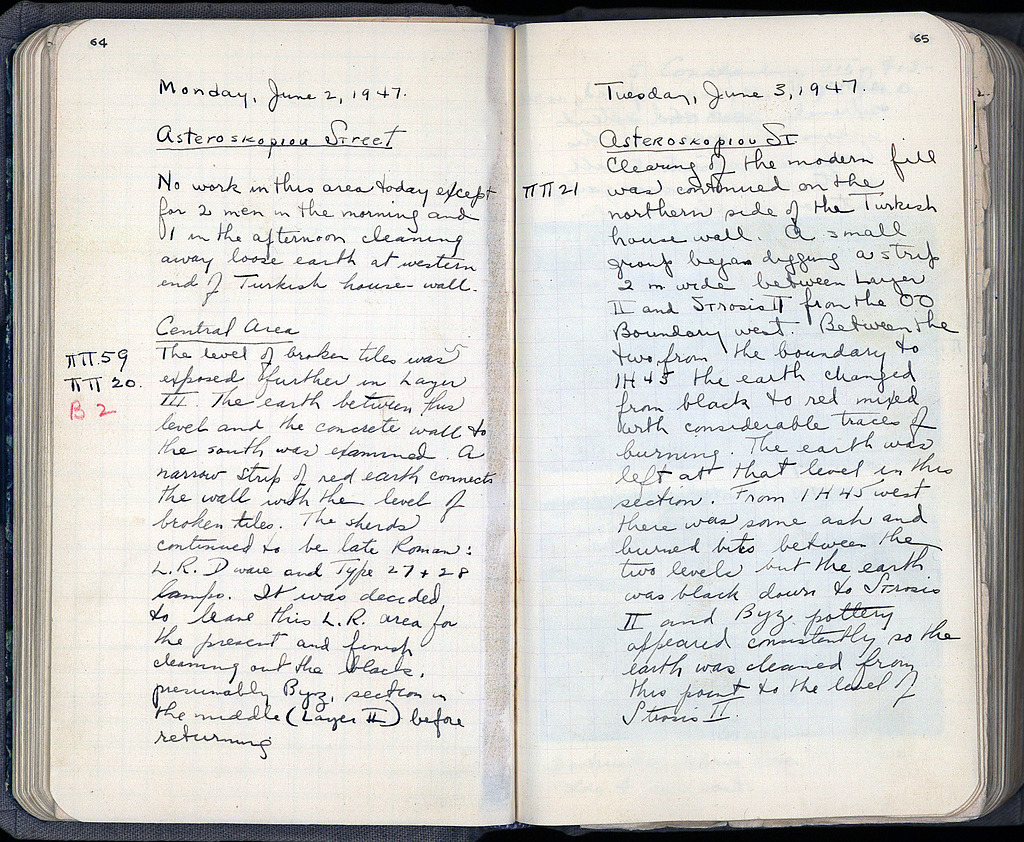 64
Monday, June 2, 1947.
Asteroskopiou Street
No work in this area today except
for 2 men in the morning and
1 in the afternoon cleaning
away loose earth at western
end of Turkish house-wall.
Central Area
ΠΠ 59
The level of broken tiles was
ΠΠ 20.
exposed further in Layer
B 2
III. The earth between this
level and the concrete wall to
the south was examined. A
narrow strip of red earth connects
the wall with the level of
broken tiles. The sherds
continued to be late Roman:
L.R. D ware and Type 27 + 28
lamps. It was decided
to leave this L.R. area for
the present and finish
cleaning out the black,
presumably Byz. section in
the middle (Layer II) before
returning
65
Tuesday, June 3, 1947.
Asteroskopiou St
Clearing of the modern fill
ΠΠ 21
was continued on the
northern side of the Turkish
house wall. A small
group began digging a strip
2 m wide between Layer
II and Strosis II from the OO
Boundary west. Between the
two from the boundary to
1H45 the earth changed
from black to red mixed
with considerable traces of
burning. The earth was
left at that level in this
section. From 1H45 west
there was some ash and
burned bits between the
two levels but the earth
was black down to Strosis
II and Byz. pottery
appeared consistently so the
earth was cleaned from
this point to the level of
Strosis II.